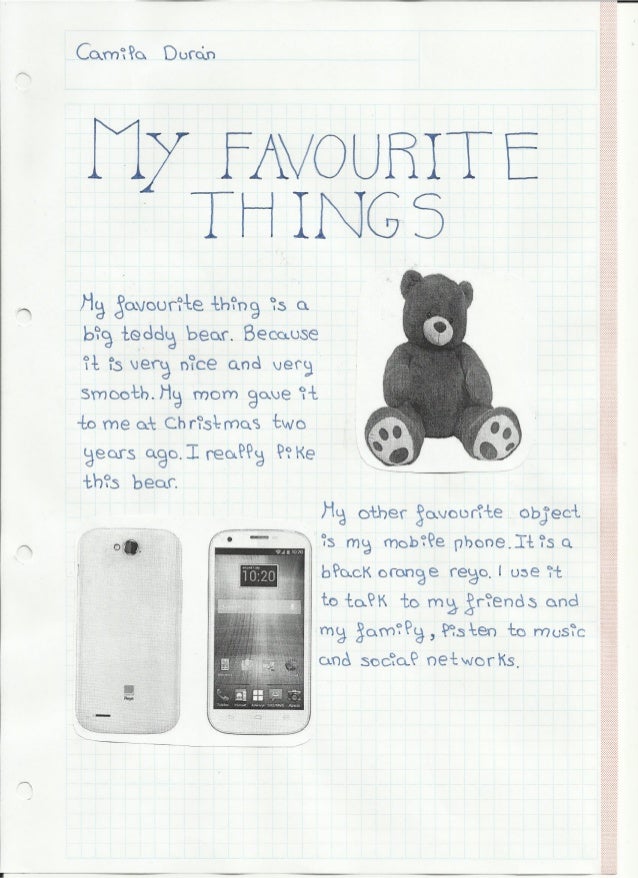 Camila Durán
MY FAVOURITE
THINGS
My favourite thing is a
big teddy bear. Because
it is very nice and very
smooth. My mom gave it
to me at Christmas two
years ago. I really like
this bear.
My other favourite object
is my mobile phone. It is a
black orange reyo. I use it
to talk to my friends and
my family, listen to music
and social networks.
10:20
10:20